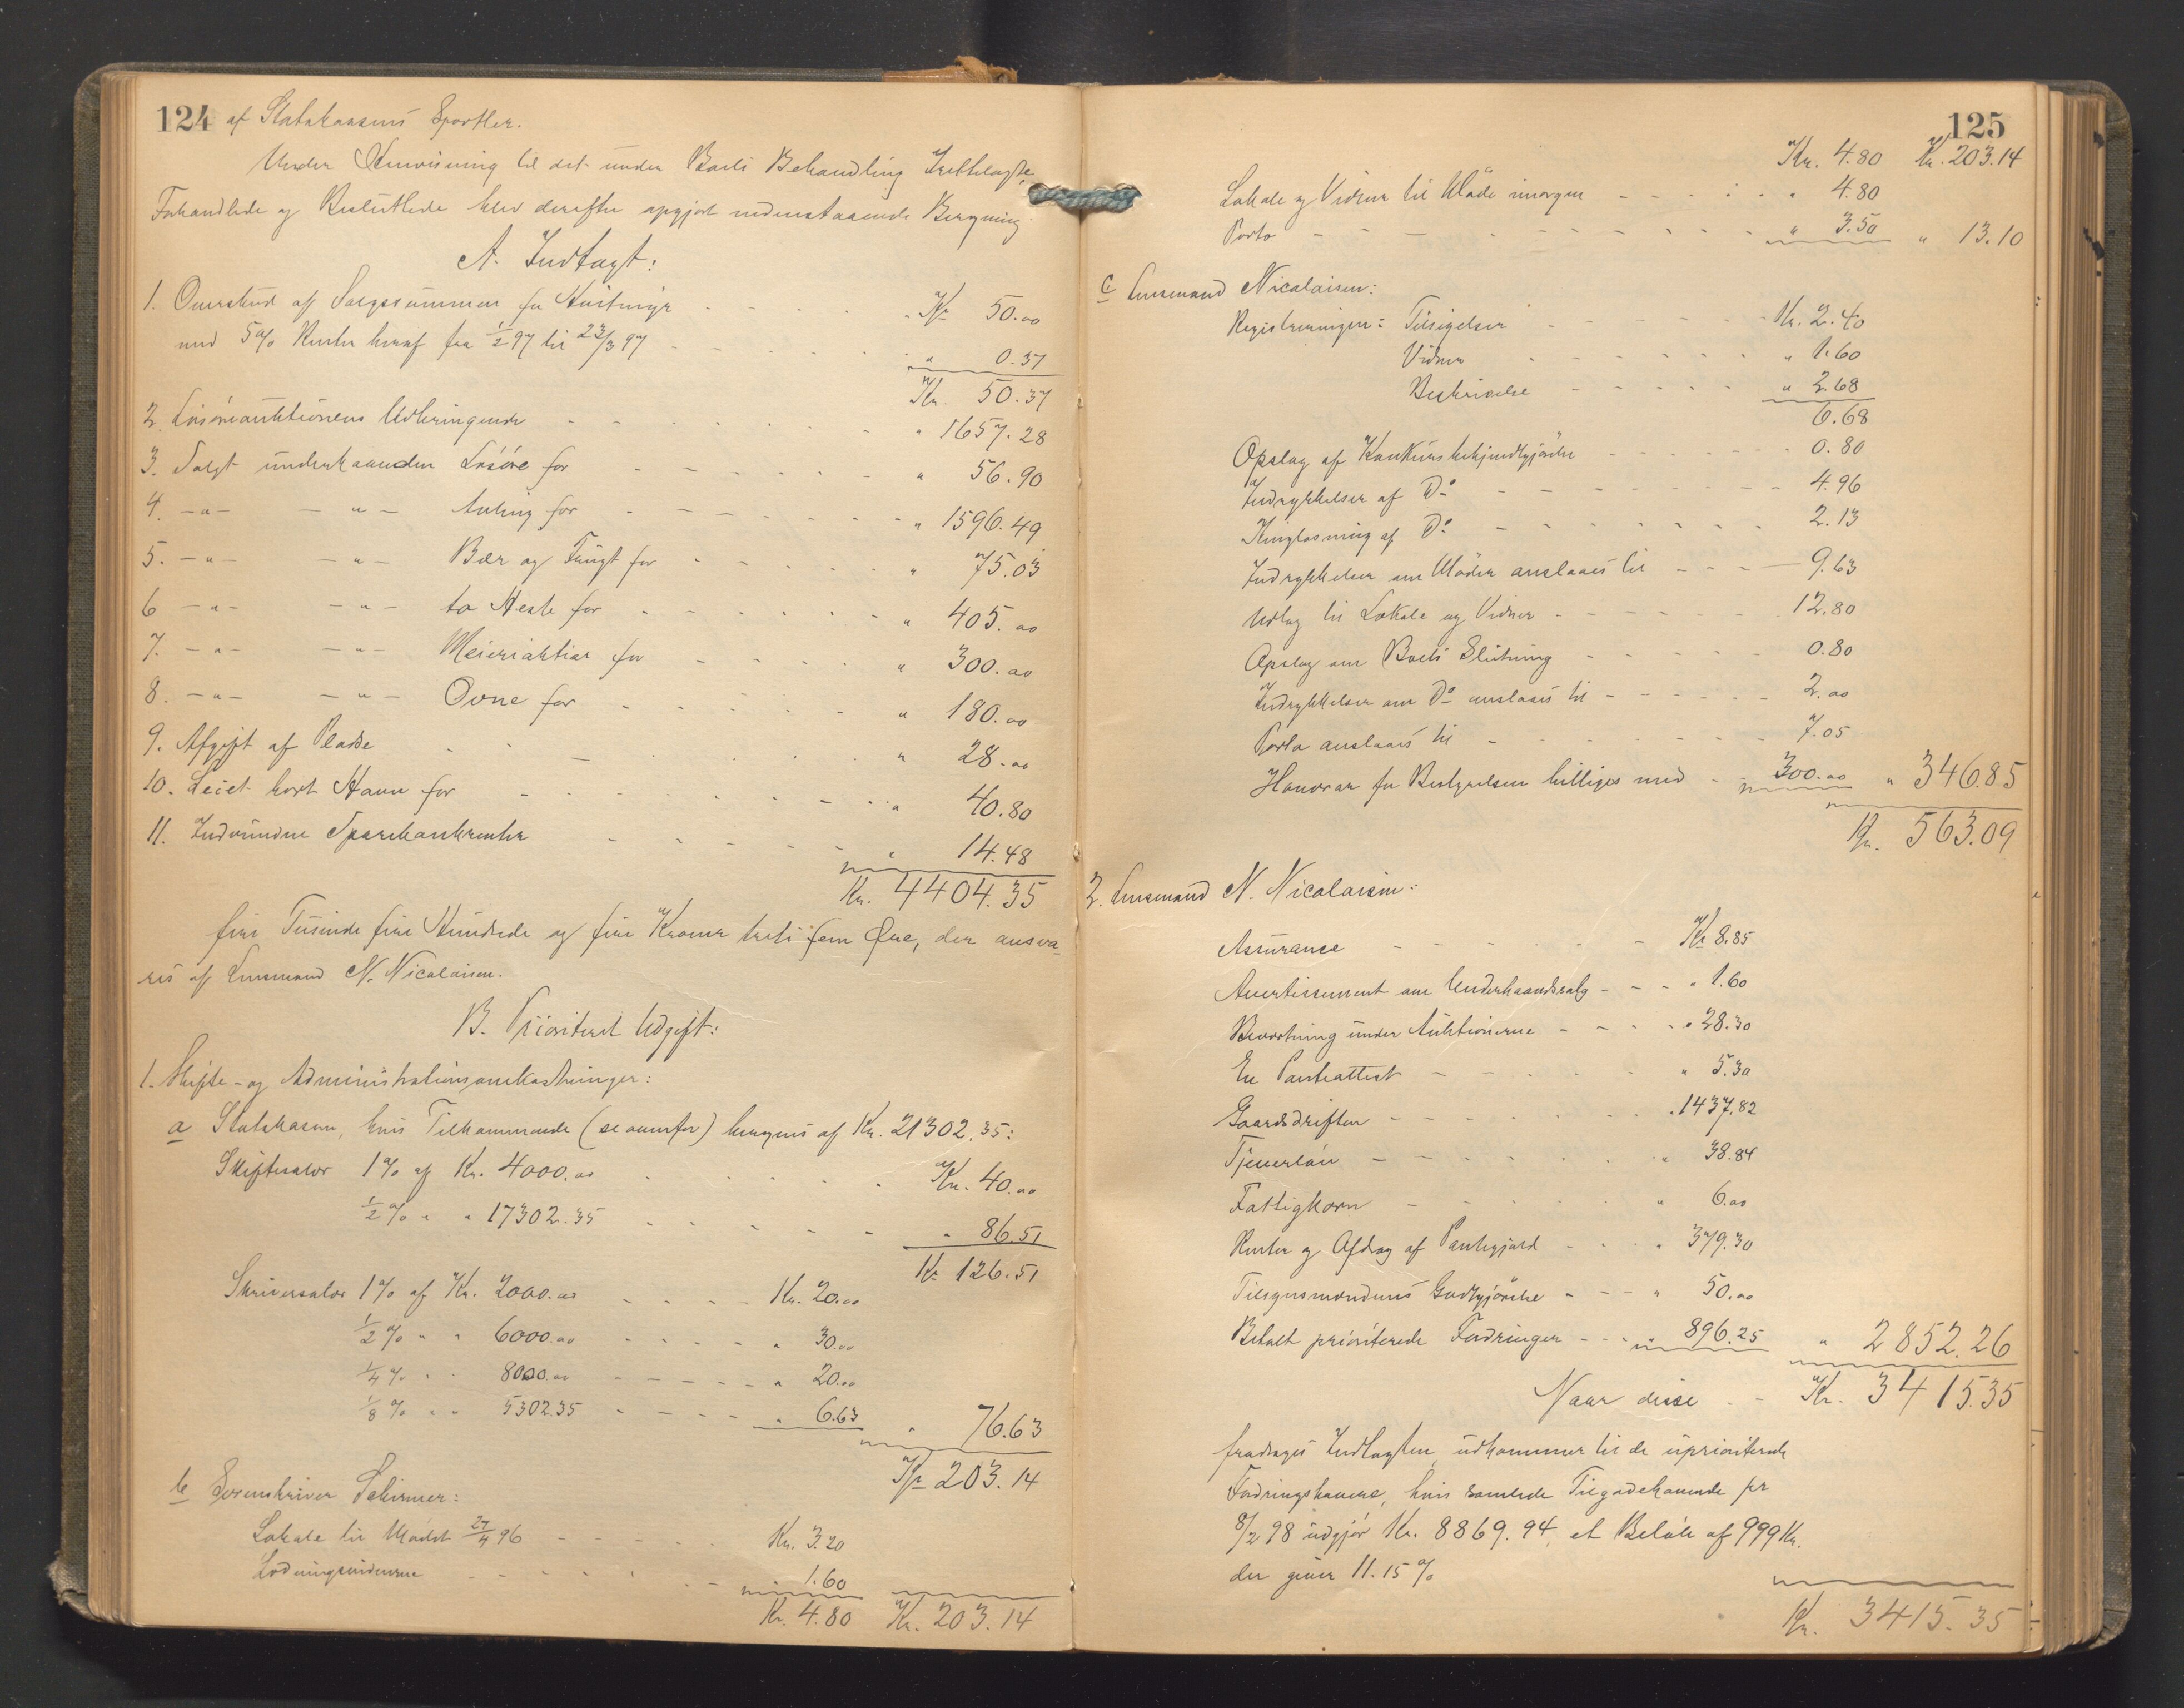 124 af Statskassens Sportler.
Under Henvisning til det under Boets Behandling Fremlagte,
Forhandlede og Besluttede blev derefter opgjort nedenstaaende Beregning.
A. Indtægt:
1. Overskud af Salgssummen for - - - Kr. 50.00
med 5 % Renter heraf fra 1/2 97 til 23/3 97 - - - " 0.37
Kr. 50.37
2. Løsøreauktionens Udbringende - - - " 1657.28
3. Solgt underhaanden Løsøre for - - - " 56.90
4. -"- -"- Avling for - - - " 1596.49
5. -"- -"- Bær og Frugt for - - - " 75.03
6 -"- -"- to Heste for - - - " 405.00
7. -"- -"- Meieriaktier for - - - " 300.00
8. -"- -"- Ovne for - - - " 180.00
9. Afgift af Pladse - - - " 28.00
10. Leiet bort Havn for - - - " 40.80
11. Indvundne Sparebankrenter - - - " 14.48
Kr. 4404.35
fire Tusinde fire Hundrede og fire Kroner treti fem Øre, der ansva-
res af Lensmand N. Nicolaisen.
B. Prioriteret Udgift:
1. Skifte- og Administrationsomkostninger:
a Statskassen, hvis Tilkommende (se ovenfor) beregnes af Kr. 21302.35:
Skiftesalær 1 % af Kr. 4000.00 - - - Kr. 40.00
1/2 % " " 17302.35 - - - " 86.51
Kr. 126.51
Skriversalær 1 % af Kr. 2000.00 - - - Kr. 20.00
1/2 % " " 6000.00 - - - " 30.00
1/4 % " " 8000.00 - - - " 20.00
1/8 % " " 5302.35 - - - " 6.63 " 76.63
Kr. 203.14
b Sorenskriver Schirmer:
Lokale til Mødet 27/4 96 - - - Kr. 3.20
Lodningsvidnerne - - - 1.60
Kr. 4.80 Kr. 203.14
125
Kr. 4.80 Kr. 203.14
Lokale og Vidner til Møde imorgen - - - " 4.80
Porto - - - " 3.50 " 13.10
c Lensmand Nicolaisen:
Registreringen: Tilsigelser - - - Kr. 2.40
Vidner - - - " 1.60
Beskrivelse - - - " 2.68
6.68
Opslag af Konkursbekjendtgjørelse - - - 0.80
Indrykkelser af Do - - - 4.96
Kinglæsning af Do - - - 2.13
Indrykkelser om Møder anslaaes til - - - 9.63
Udlæg til Lokale og Vidner - - - 12.80
Opslag om Boets Slutning - - - 0.80
Indrykkelser om Do anslaaes til - - - 2.00
Porto anslaaes til - - - 7.05
Honorar for Bestyrelsen billiges med - - - 300.00 " 346.85
Kr. 563.09
2. Lensmand N. Nicolaisen:
Assurance - - - Kr. 8.85
Avertissement om Underhaandssalg - - - " 1.60
Bevertning under Auktionerne - - - " 28.30
En Panteattest - - - " 5.30
Gaardsdriften - - - " 1437.82
Tjenerløn - - - " 38.84
Fattigkorn - - - " 6.00
Renter og Afdrag af Pantegjæld - - - " 379.30
Tilsynsmændenes Godtgjørelse - - - " 50.00
Betalt prioriterede Fordringer - - - " 896.25 " 2852.26
Naar disse - - Kr. 3415.35
fradrages Indtægten, udkommer til de uprioriterede
Fordringshavere, hvis samlede Tilgodehavende pr
8/2 98 udgjør Kr. 8869.94, et Beløb af 999 Kr.
der giver 11.15 %
Kr. 3415.35